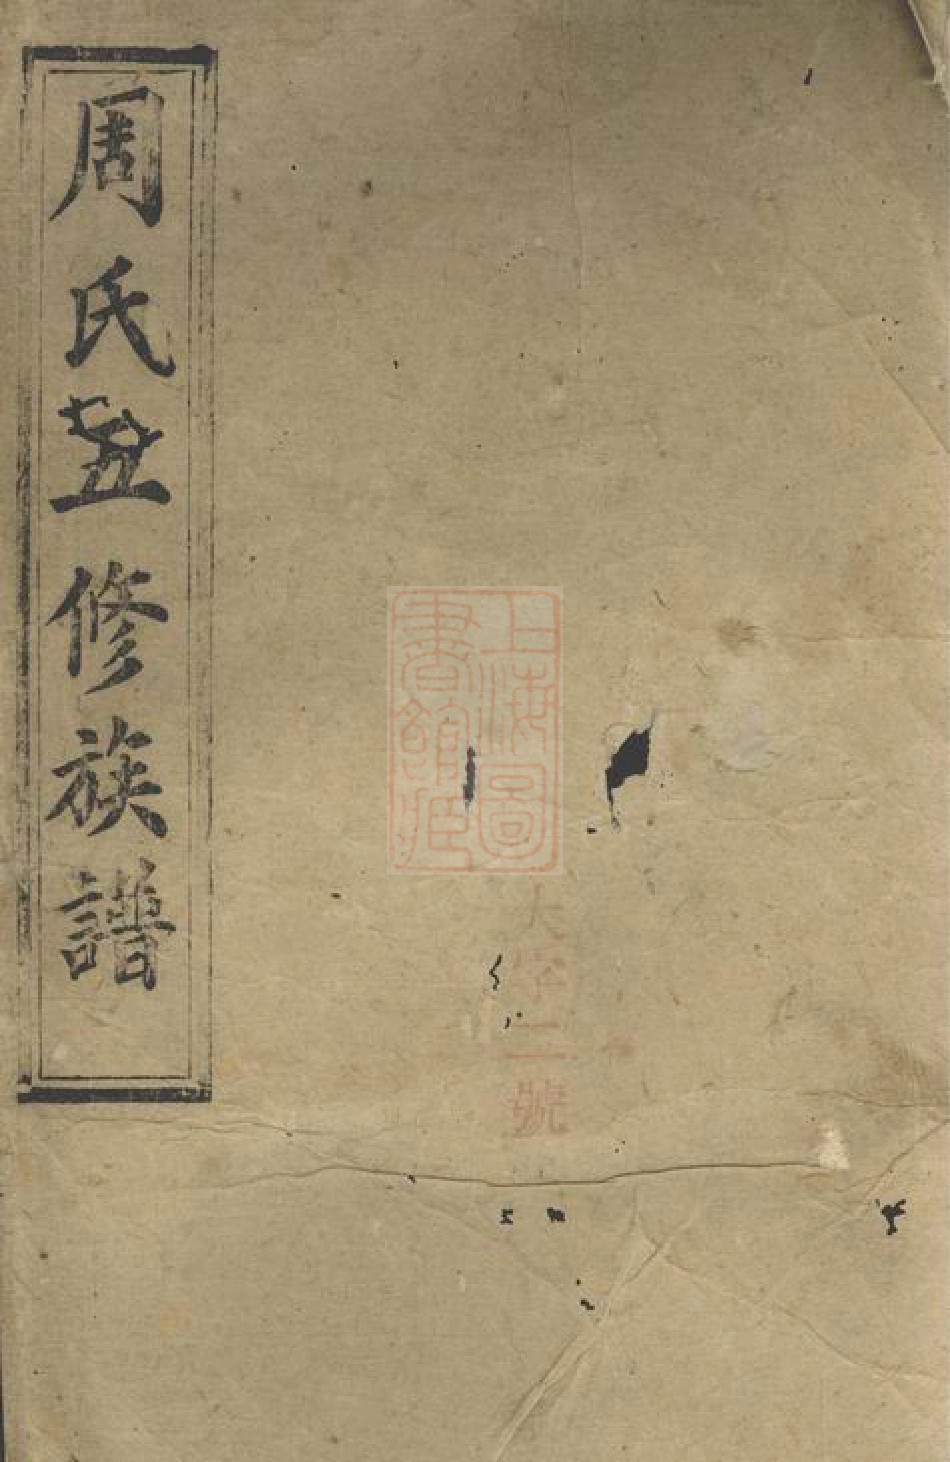 周氏五修族譜
上海圖
書館藏
字二號